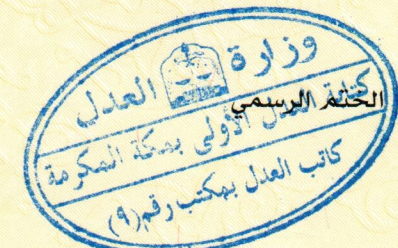 وزارة العدل
الختم الرسمي
كتابة العدل الأولى بمكة المكرمة
كاتب العدل بمكتب رقم (٩)